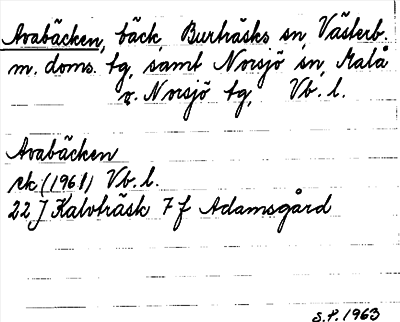 Avabäcken, bäck, Burträsks sn, Västerb.
m. doms. tg, samt Norsjö sn, Malå
o. Norsjö tg, Vb. l.
Avabäcken
rk (1961) Vb. l.
22 J Kalvträsk 7 f Adamsgård
S.P. 1963